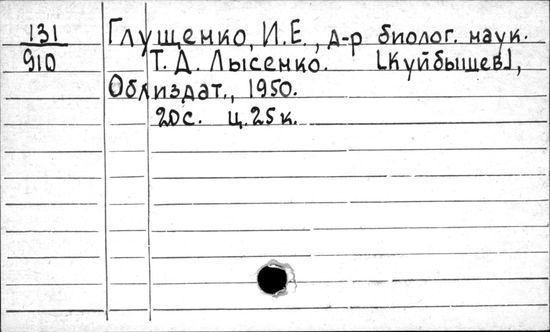 131 Глущенко, И.Е., д-р биолог. наук.
910 Т. Д. Лысенко. [Куйбышев],
Облиздат., 1950.
20с. ц. 25 к.